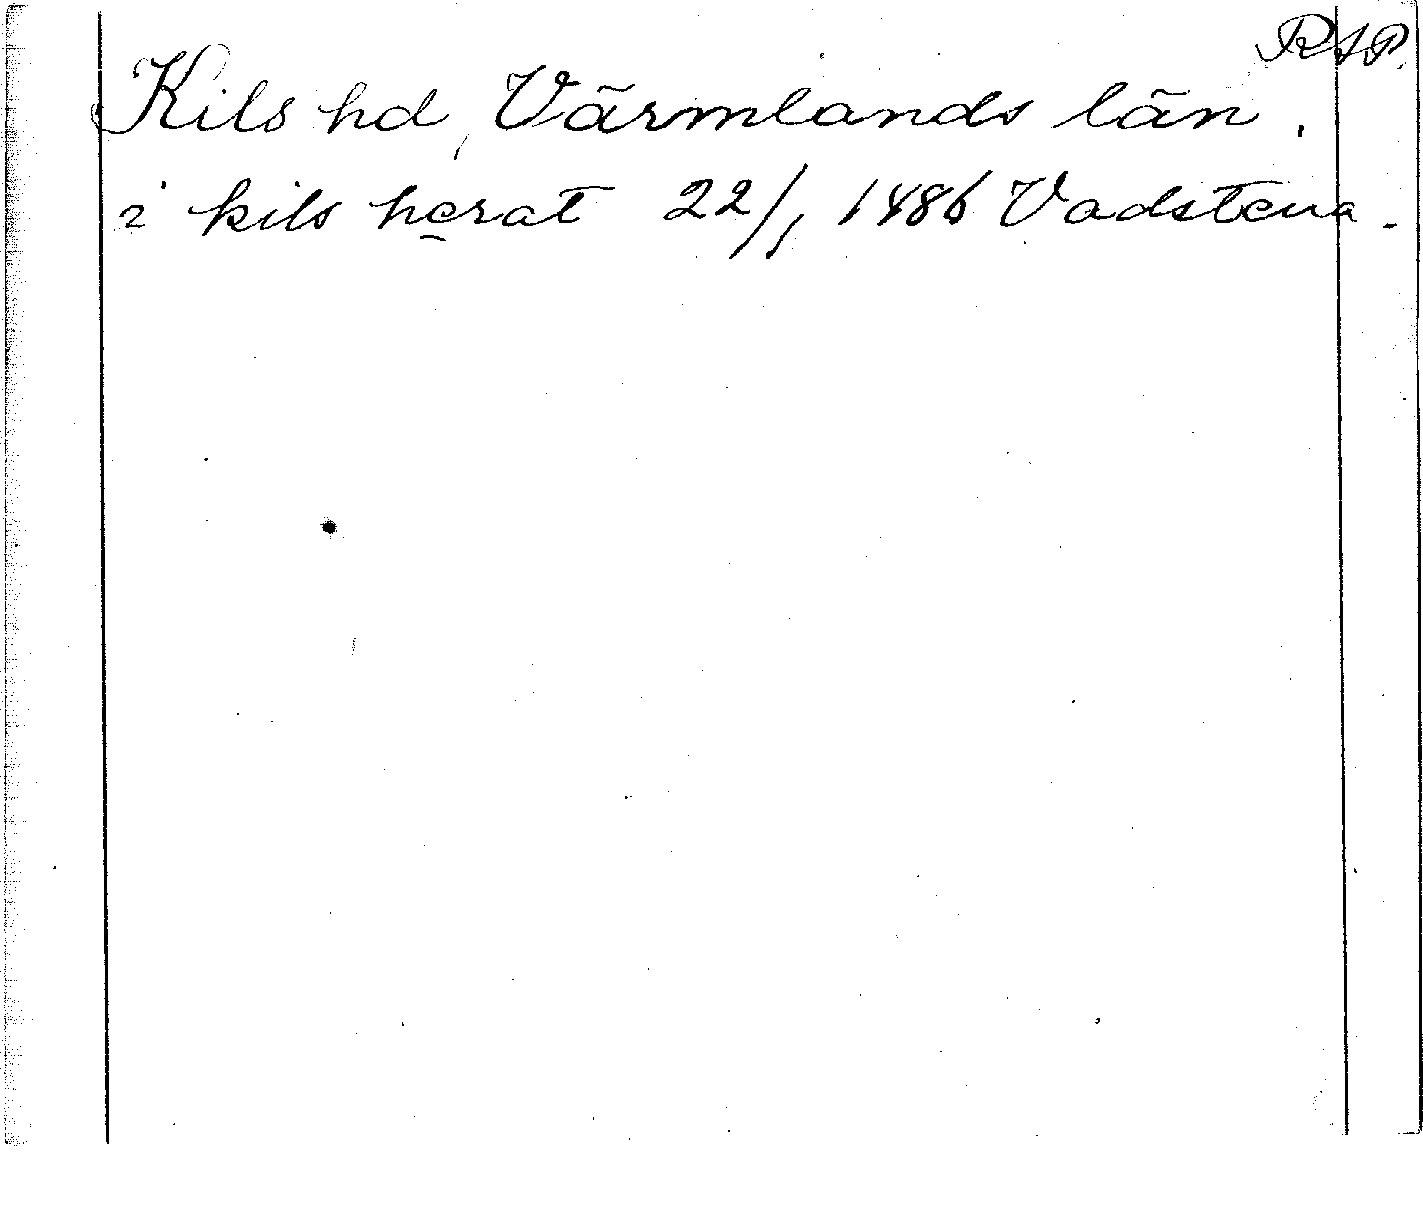 RAP.
Kils hd, Värmlands län.
i kils herat 22/1 1486 Vadstena.